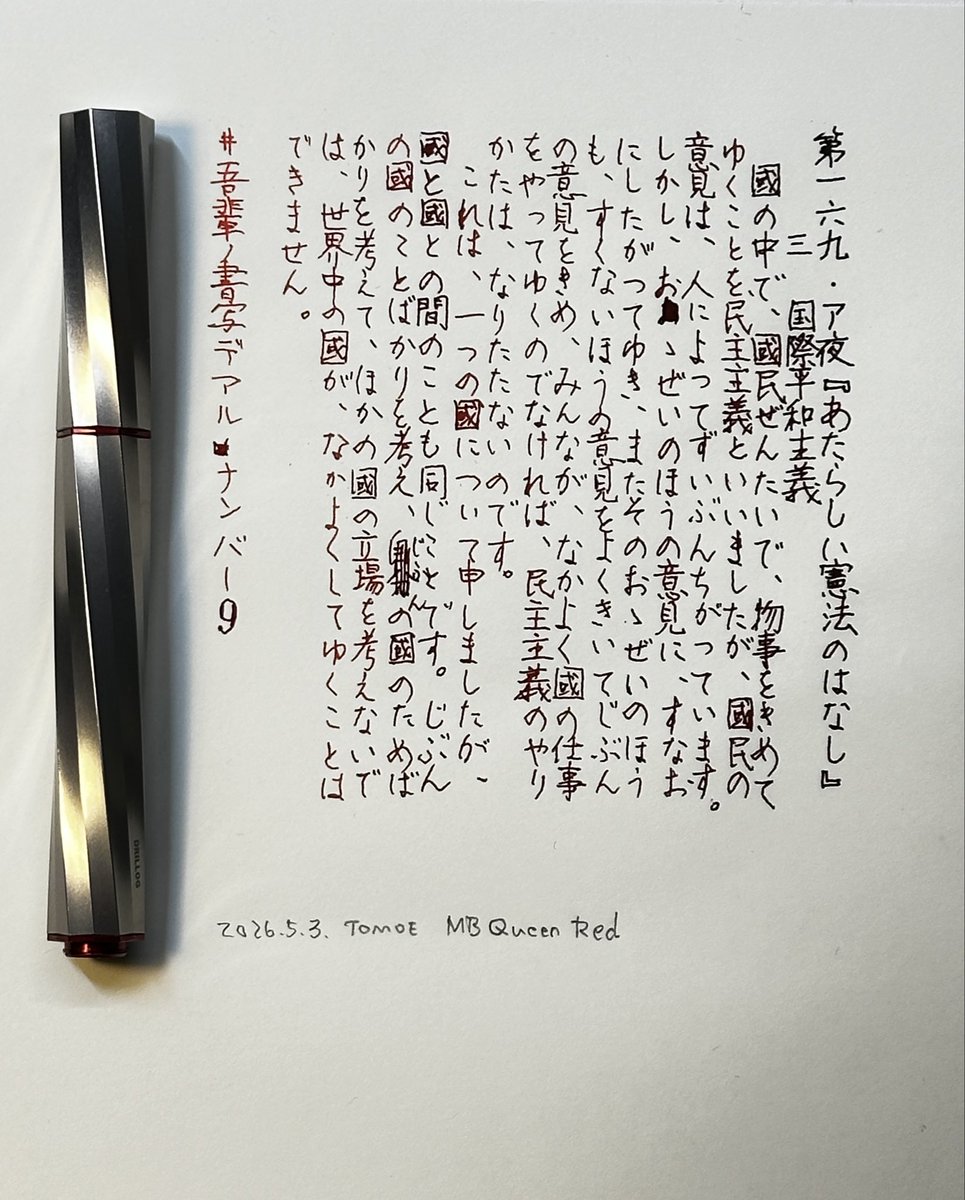 第一六九・ア夜『あたらしい憲法のはなし』
三 国際平和主義
國の中で、國民ぜんたいで、物事をきめて
ゆくことを民主主義といいましたが、國民の
意見は、人によってずいぶんちがっています。
しかし、おゝぜいのほうの意見に、すなお
にしたがってゆき、またそのおゝぜいのほう
も、すくないほうの意見をよくきいてじぶん
の意見をきめ、みんなが、なかよく國の仕事
をやってゆくのでなければ、民主主義のやり
かたは、なりたたないのです。
これは、一つの國について申しましたが、
國と國との間のことも同じことです。じぶん
の國のことばかりを考え、じぶんの國のためば
かりを考えて、ほかの國の立場を考えないで
は、世界中の國が、なかよくしてゆくことは
できません。
#吾輩ノ書写デアル ナンバー9
DRILLOG
2026.5.3. TOMOE MB Queen Red